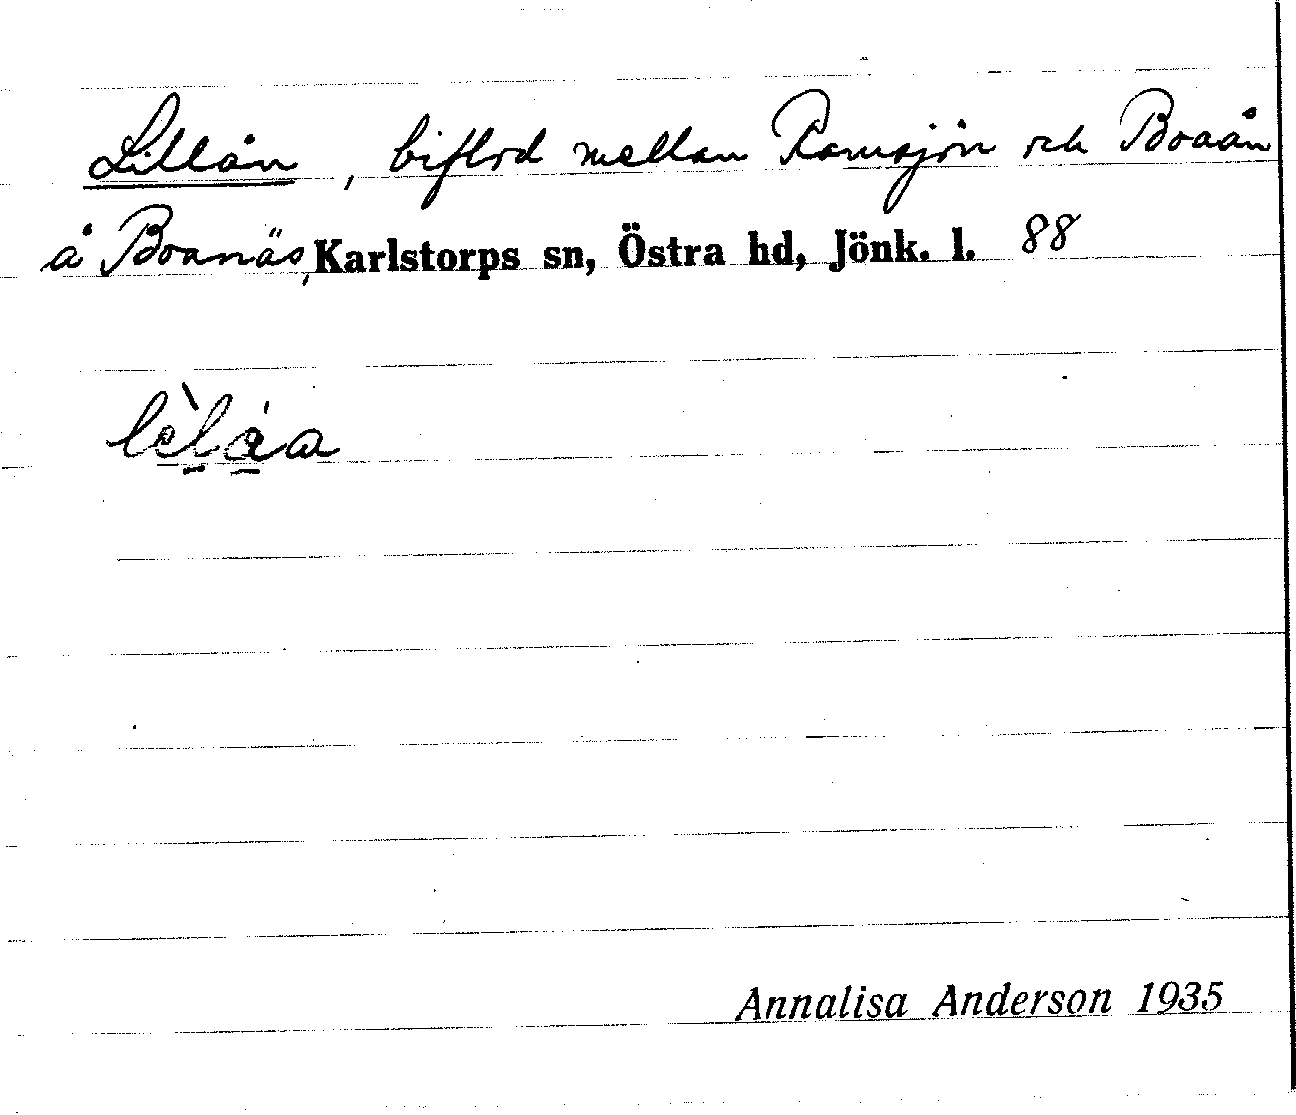 Lillån, biflod mellan Ramsjön och Boaån
å Boanäs, Karlstorps sn, Östra hd, Jönk. l. 88
Annalisa Anderson 1935